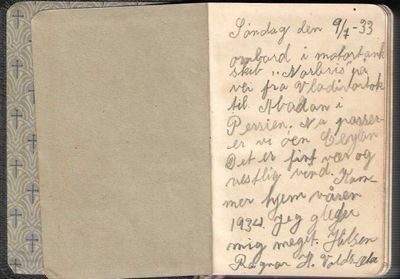 Søndag den 9/7-33
ombord i motortank
skib "Norbris" på
vei fra Vladivostok
til Abadan i
Persien. Nu passer-
er vi öen Ceylon
Det er fint vær og
vestlig vind. Kom-
mer hjem våren
1934. Jeg gleder
mig meget. Hilsen
Ragnar H.